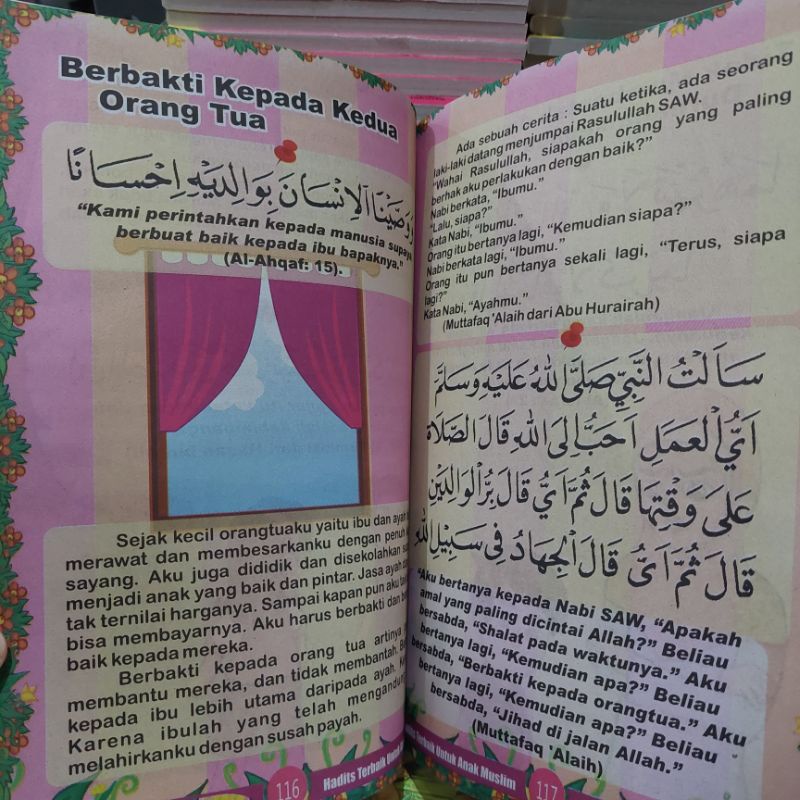 Berbakti Kepada Kedua
Orang Tua
وَوَصَّيْنَا الْاِنْسَانَ بِوَالِدَيْهِ اِحْسَانًا
“Kami perintahkan kepada manusia supaya
berbuat baik kepada ibu bapaknya."
(Al-Ahqaf: 15).
Sejak kecil orangtuaku yaitu ibu dan ayah
merawat dan membesarkanku dengan penuh
sayang. Aku juga dididik dan disekolahkan
menjadi anak yang baik dan pintar. Jasa ayah
tak ternilai harganya. Sampai kapan pun aku
bisa membayarnya. Aku harus berbakti dan
baik kepada mereka.
Berbakti kepada orang tua artinya
membantu mereka, dan tidak membantah.
kepada ibu lebih utama daripada ayah.
Karena ibulah yang telah mengandung
melahirkanku dengan susah payah.
116
Hadits Terbaik Untuk
Ada sebuah cerita : Suatu ketika, ada seorang
laki-laki datang menjumpai Rasulullah SAW.
“Wahai Rasulullah, siapakah orang yang paling
berhak aku perlakukan dengan baik?”
Nabi berkata, “Ibumu.”
“Lalu, siapa?”
Kata Nabi, “Ibumu.”
Orang itu bertanya lagi, “Kemudian siapa?”
Nabi berkata lagi, “Ibumu.”
Orang itu pun bertanya sekali lagi, “Terus, siapa
lagi?”
Kata Nabi, “Ayahmu.”
(Muttafaq 'Alaih dari Abu Hurairah)
سَاَلْتُ النَّبِيَّ صَلَّى اللهُ عَلَيْهِ وَسَلَّمَ
اَيُّ الْعَمَلِ اَحَبُّ اِلَى اللهِ قَالَ الصَّلَاةُ
عَلَى وَقْتِهَا قَالَ ثُمَّ اَيُّ قَالَ بِرُّ الْوَالِدَيْنِ
قَالَ ثُمَّ اَيُّ قَالَ الْجِهَادُ فِى سَبِيْلِ اللهِ
“Aku bertanya kepada Nabi SAW, “Apakah
amal yang paling dicintai Allah?” Beliau
bersabda, “Shalat pada waktunya.” Aku
bertanya lagi, “Kemudian apa?” Beliau
bersabda, “Berbakti kepada orangtua.” Aku
bertanya lagi, “Kemudian apa?” Beliau
bersabda, “Jihad di jalan Allah.”
(Muttafaq 'Alaih)
Terbaik Untuk Anak Muslim
117